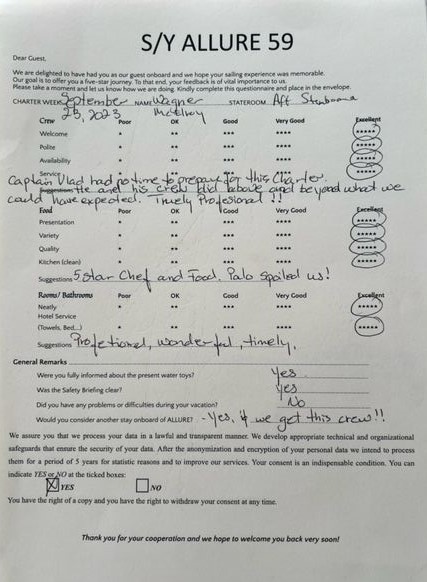 S/Y ALLURE 59
Dear Guest,
We are delighted to have had you as our guest onboard and we hope your sailing experience was memorable.
Our goal is to offer you a five-star journey. To that end, your feedback is of vital importance to us.
Please take a moment and let us know how we are doing. Kindly complete this questionnaire and place in the envelope.
CHARTER WEEK September 23, 2023 NAME Wagner McElroy STATEROOM Aft Starboard
Crew Poor OK Good Very Good Excellent
Welcome * ** *** **** *****
Polite * ** *** **** *****
Availability * ** *** **** *****
Service
Captain Vlad had no time to prepare for this Charter.
He and his crew did above and beyond what we
could have expected. Timely Profesional !!
Food Poor OK Good Very Good Excellent
Presentation * ** *** **** *****
Variety * ** *** **** *****
Quality * ** *** **** *****
Kitchen (clean) * ** *** **** *****
Suggestions 5 Star Chef and Food. Pablo spoiled us!
Rooms/ Bathrooms Poor OK Good Very Good Excellent
Neatly * ** *** **** *****
Hotel Service
(Towels, Bed...) * ** *** **** *****
Suggestions Profetional, wonderful, timely.
General Remarks
Were you fully informed about the present water toys? Yes
Was the Safety Briefing clear? Yes
Did you have any problems or difficulties during your vacation? No
Would you consider another stay onboard of ALLURE? - Yes, if we get this crew!!
We assure you that we process your data in a lawful and transparent manner. We develop appropriate technical and organizational
safeguards that ensure the security of your data. After the anonymization and encryption of your personal data we intend to process
them for a period of 5 years for statistic reasons and to improve our services. Your consent is an indispensable condition. You can
indicate YES or NO at the ticked boxes:
YES NO
You have the right of a copy and you have the right to withdraw your consent at any time.
Thank you for your cooperation and we hope to welcome you back very soon!